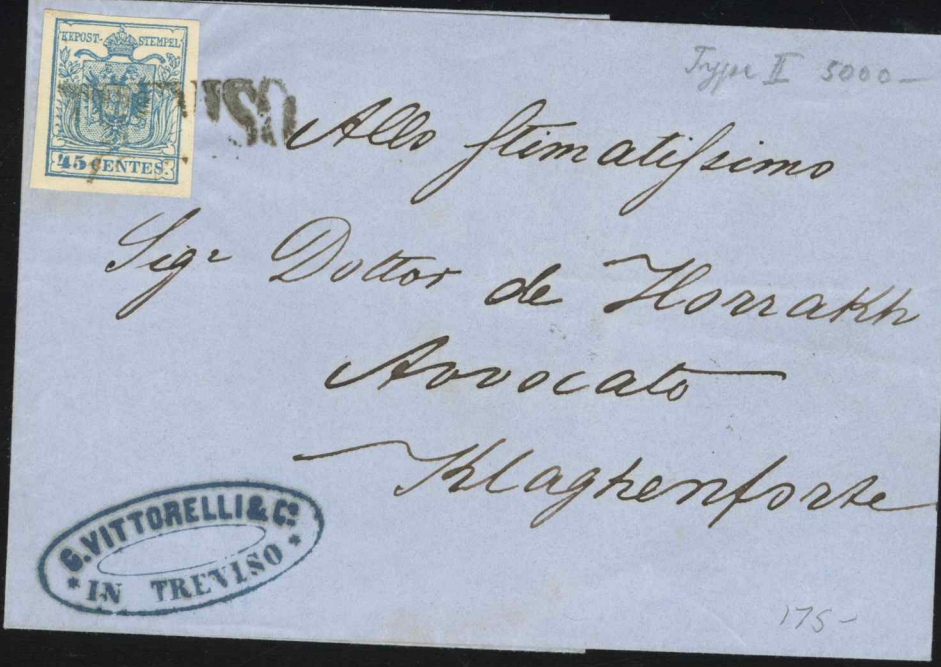 KKPOST-STEMPEL
45 CENTES:
TREVISO
Type II 5000–
Allo Stimatissimo
Sigr Dottor de Horrakh
Avvocato
Klaghenforte
G. VITTORELLI & Co.
* IN TREVISO *
175–